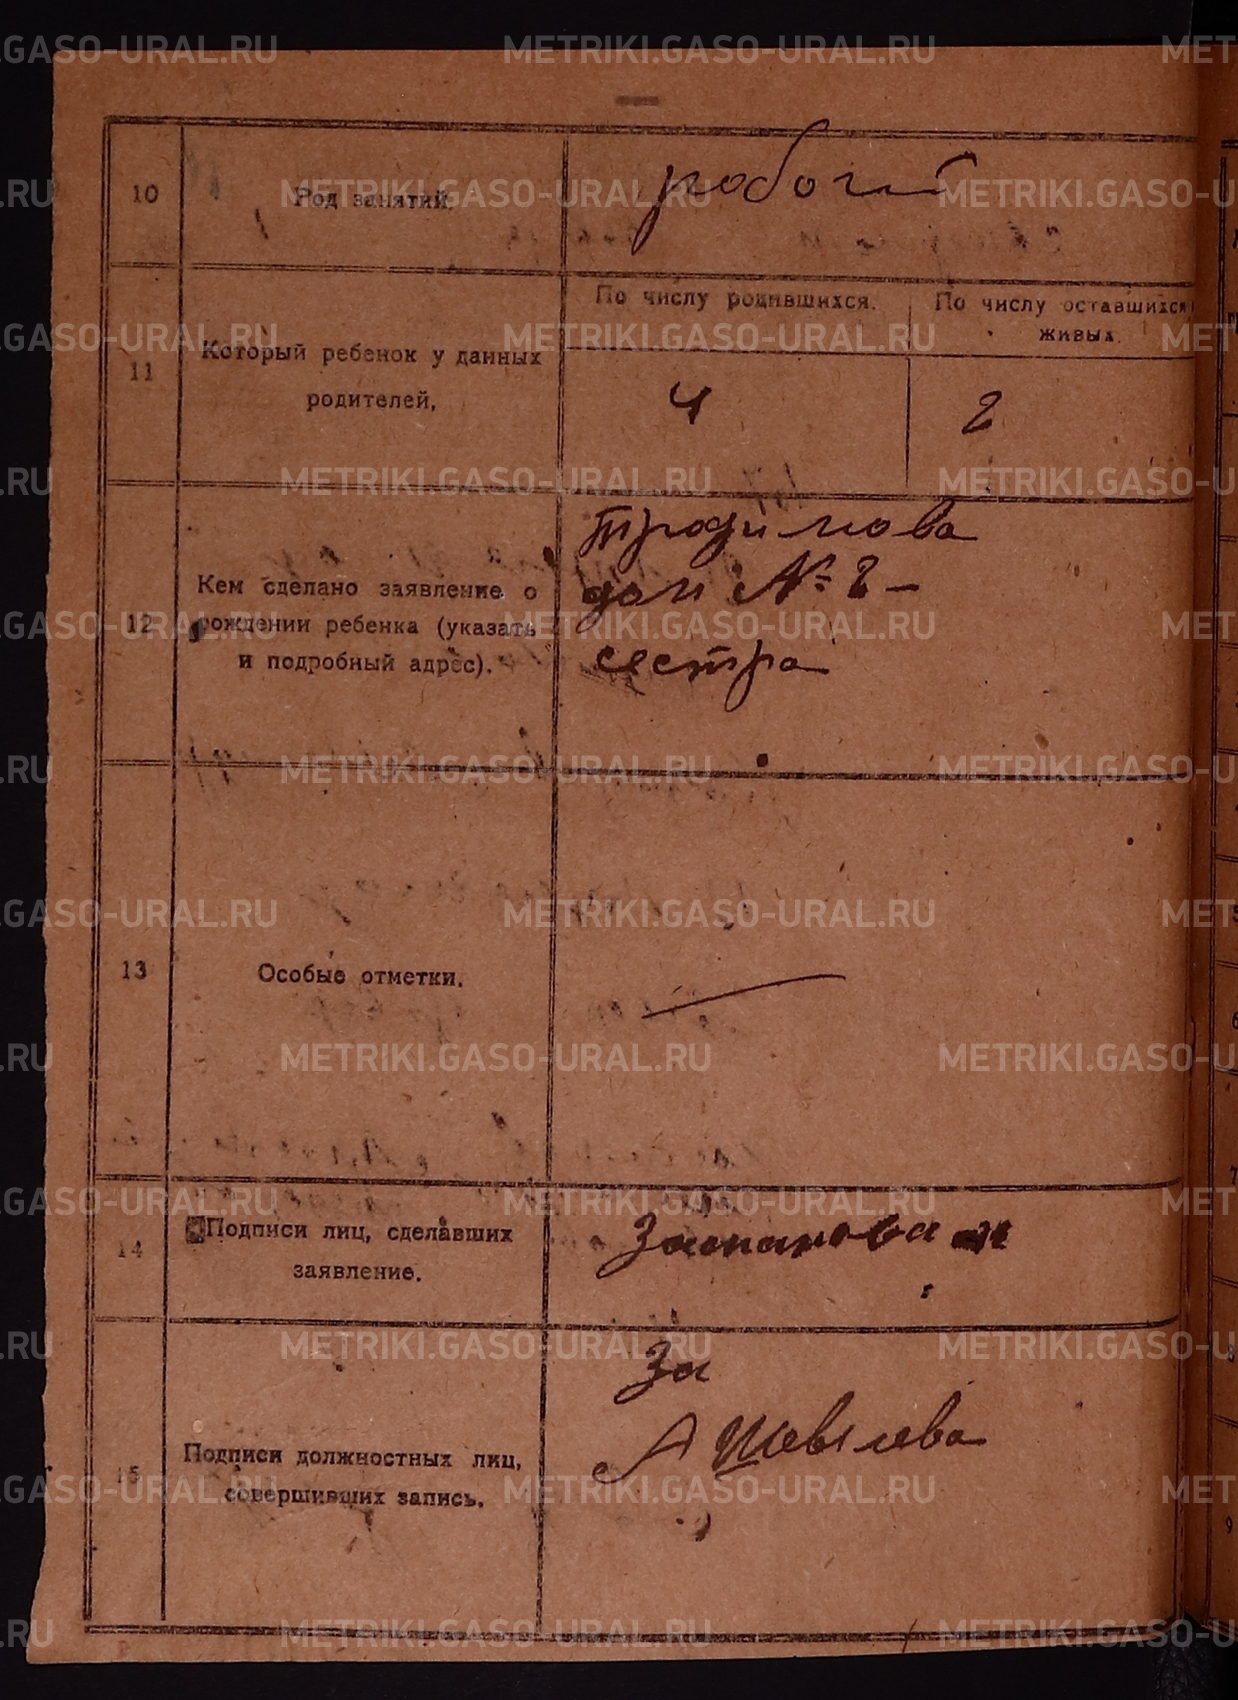 10
Род занятий.
робочий
11
Который ребенок у данных
родителей,
По числу родившихся.
По числу оставшихся
живых.
4
2
12
Кем сделано заявление о
рождении ребенка (указать
и подробный адрес).
дом № 2 –
сестра
13
Особые отметки.
14
Подписи лиц, сделавших
заявление.
15
Подписи должностных лиц,
совершивших запись.
За
METRIKI.GASO-URAL.RU